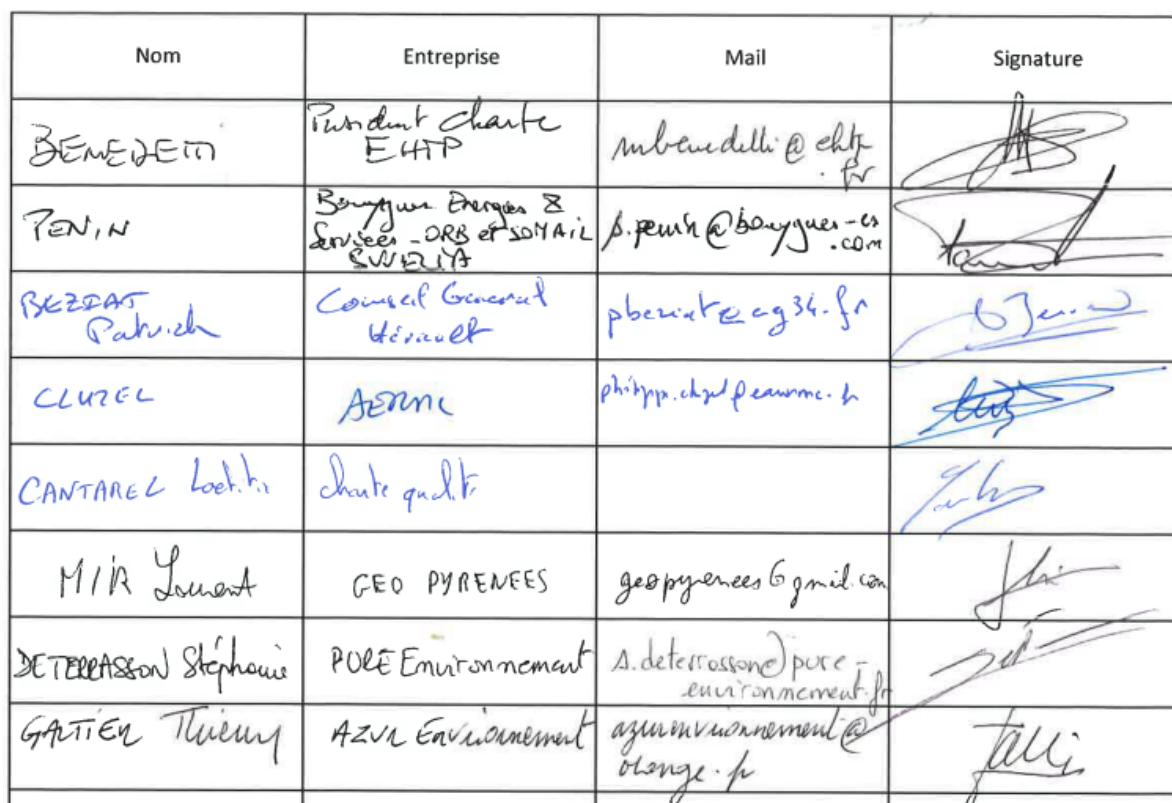 Nom Entreprise Mail Signature
BENEDETTI
Président Charte
EHTP
mbenedetti@ehtp
.fr
PENIN
Bouygues Energies &
Services - ORB et SOMAIL
s.penin@bouygues-es
.com
BEZIAT
Patrick
Conseil General
Hérault
pbeziat@cg34.fr
CLUZEL
AERMC
philippe.cluzel@eaurmc.fr
CANTAREL Laetitia
charte qualité
MIR Laurent
GEO PYRENEES
geopyrenees@gmail.com
DETERRASSON Stéphanie
PURE Environnement
s.deterrasson@pure-
environnement.fr
GALTIER Thierry
AZUR Environnement
azurenvironnement@
orange.fr